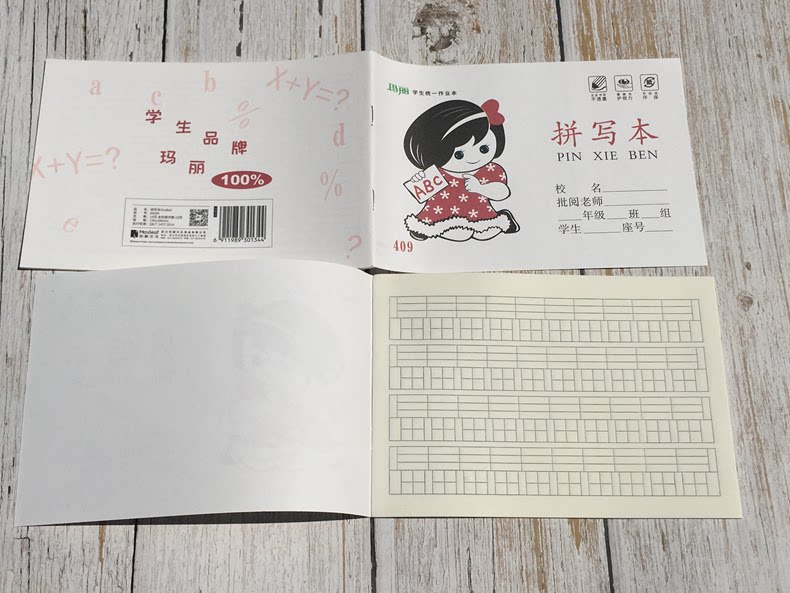 a
b
c
d
e
X+Y=?
X+Y=?
%
%
?
学生品牌
玛丽
100%
6 911989 301344
玛丽 学生统一作业本
不透墨
护视力
环保
ABC
409
拼写本
PIN XIE BEN
校 名
批阅老师
年级 班 组
学生 座号